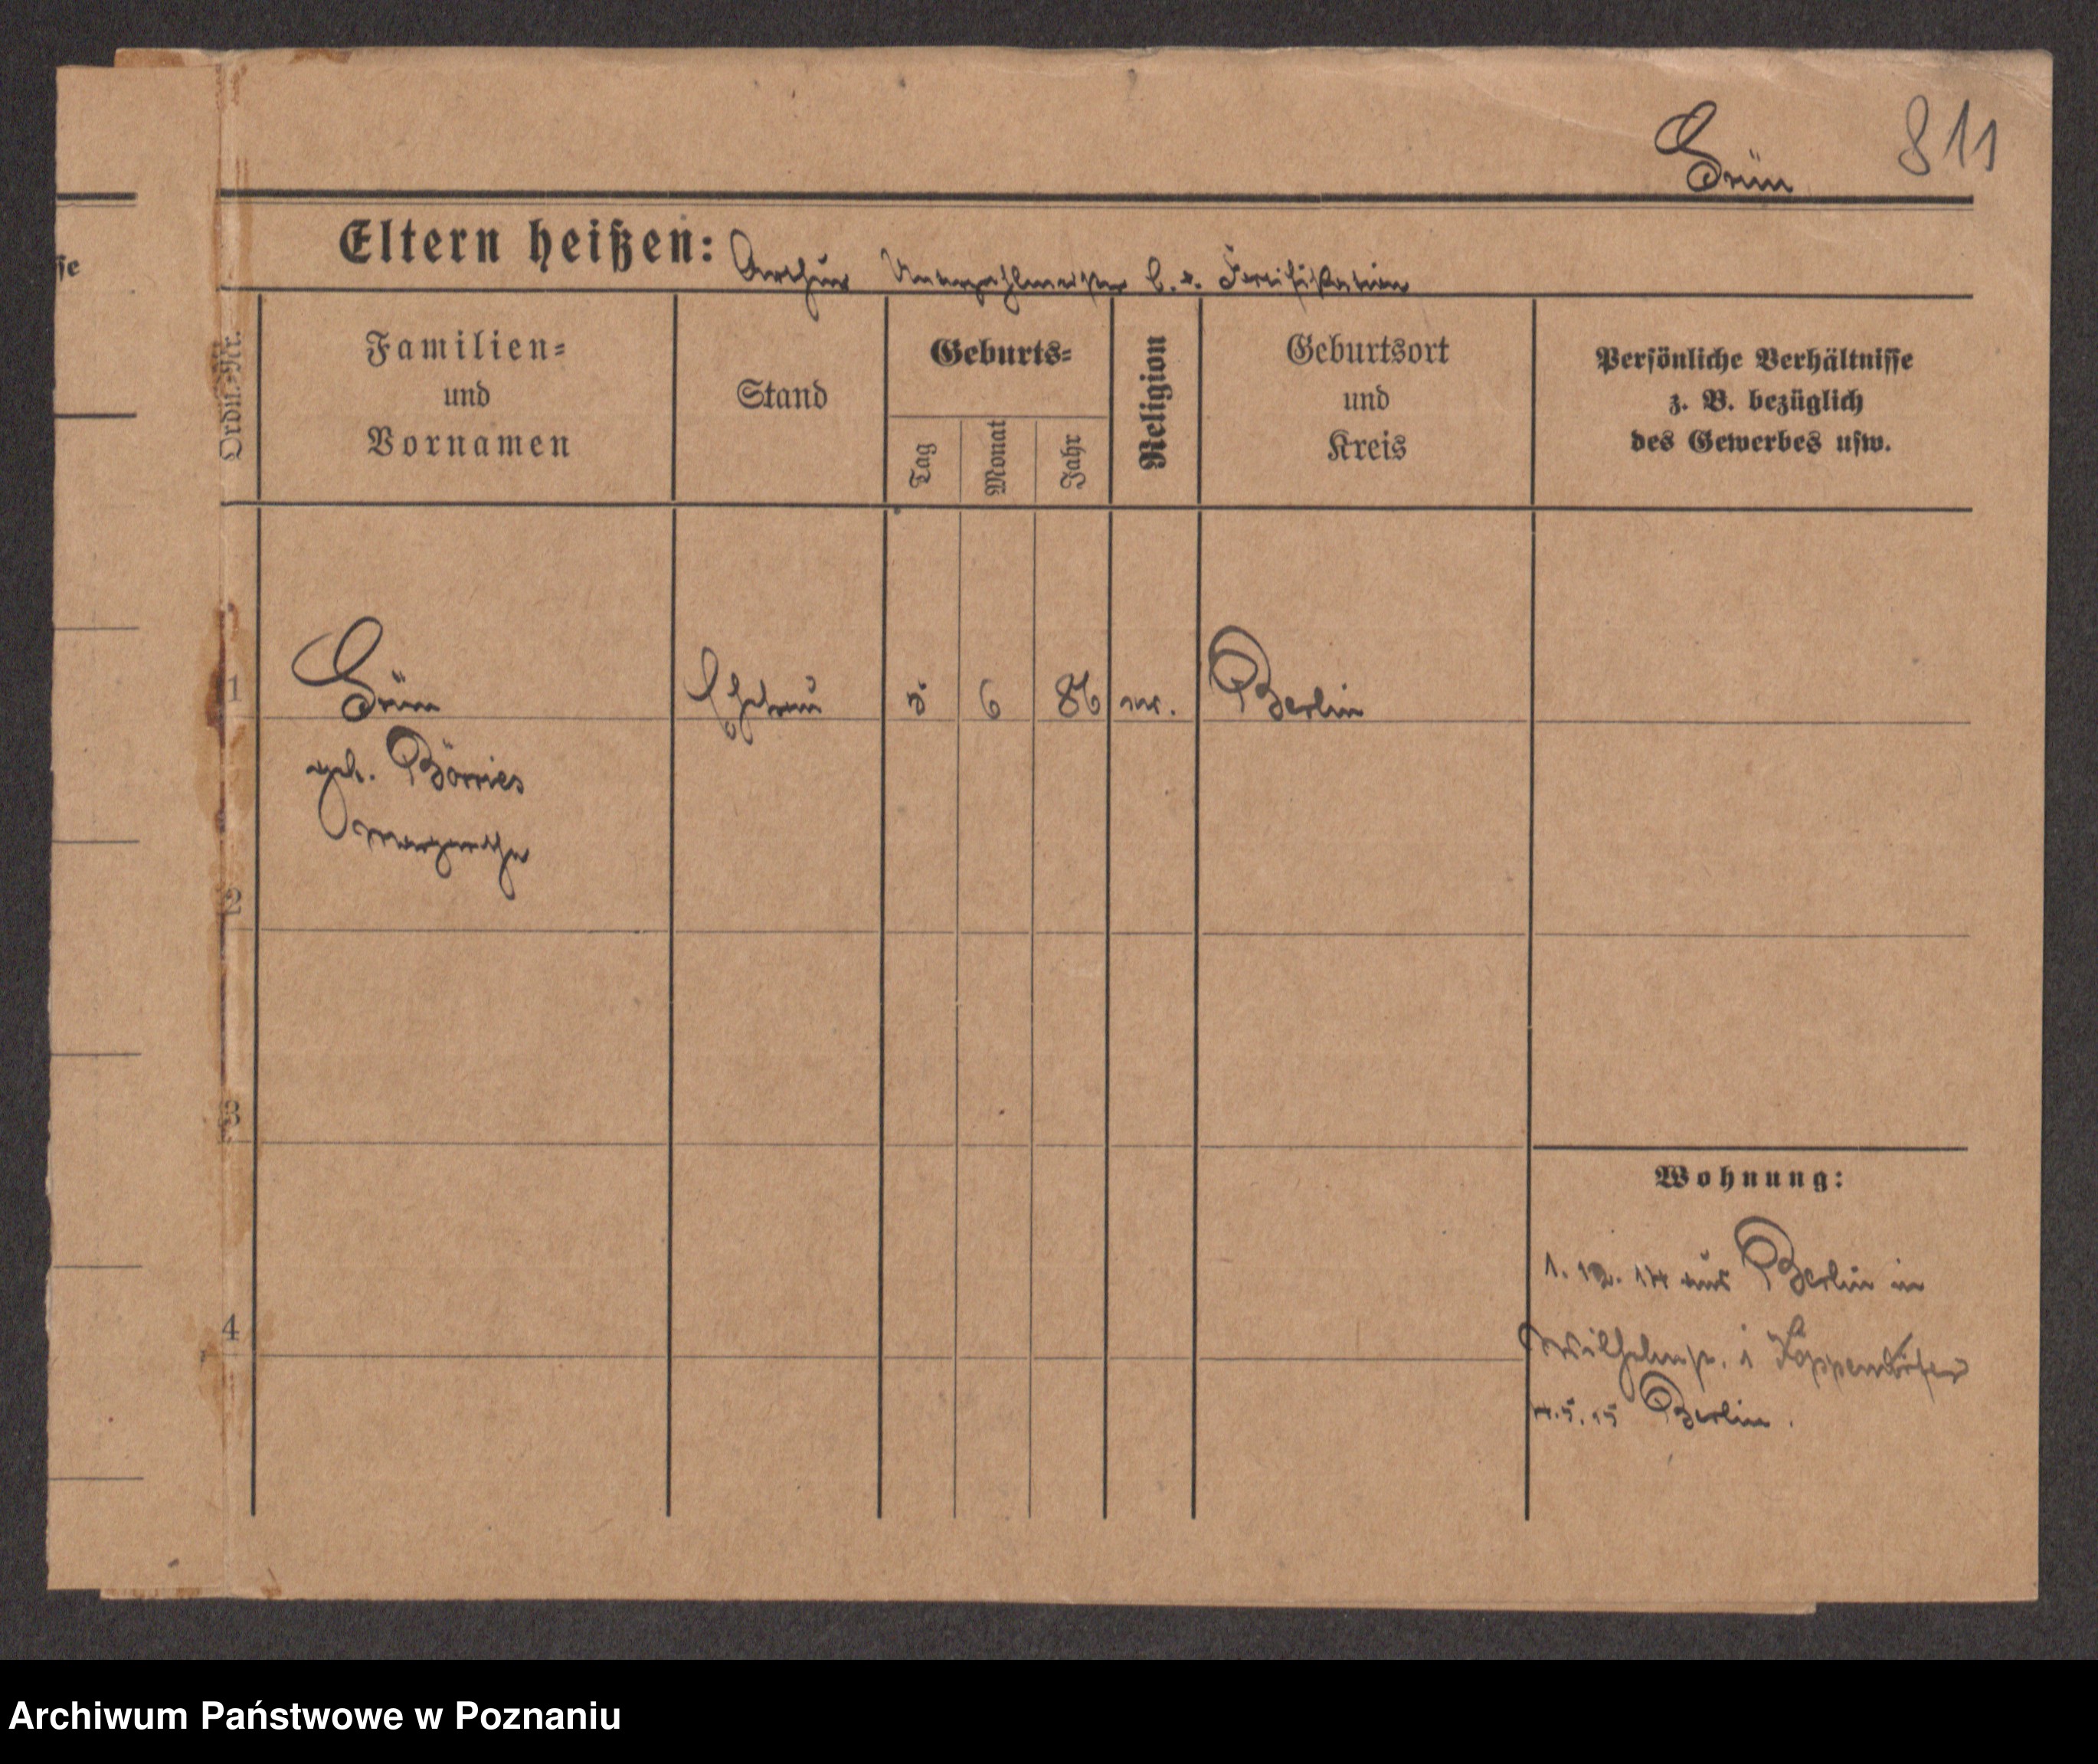 Grün 811
se
Eltern heißen: Arthur Unterzahlmeister b. d. Fortifikation
Ordn.-Nr.
Familien-
und
Vornamen
Stand
Geburts-
Tag
Monat
Jahr
Religion
Geburtsort
und
Kreis
Persönliche Verhältnisse
z. B. bezüglich
des Gewerbes usw.
1 Grün Ehefrau 5 6 86 ev. Berlin
geb. Börries
Margarethe
2
3
Wohnung:
1. 12. 14 aus Berlin in
4
Wilhelmstr. 1
4.5.15 Berlin.
Archiwum Państwowe w Poznaniu